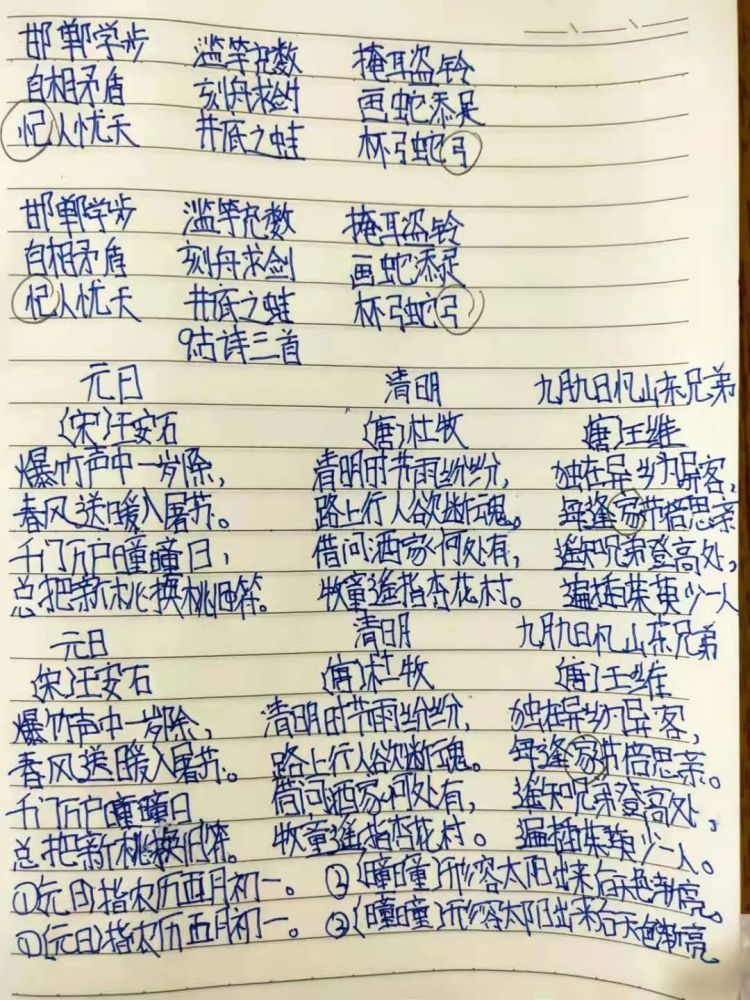 邯郸学步 滥竽充数 掩耳盗铃
自相矛盾 刻舟求剑 画蛇添足
忋人忧天 井底之蛙 杯弓蛇弓
邯郸学步 滥竽充数 掩耳盗铃
自相矛盾 刻舟求剑 画蛇添足
忋人忧天 井底之蛙 杯弓蛇弓
9古诗三首
元日 清明 九月九日忆山东兄弟
〔宋〕王安石 〔唐〕杜牧 〔唐〕王维
爆竹声中一岁除， 清明时节雨纷纷， 独在异乡为异客，
春风送暖入屠苏。 路上行人欲断魂。 每逢家节倍思亲
千门万户曈曈日， 借问酒家何处有， 遥知兄弟登高处，
总把新桃换旧符。 牧童遥指杏花村。 遍插茱萸少一人
元日 清明 九月九日忆山东兄弟
〔宋〕王安石 〔唐〕杜牧 〔唐〕王维
爆竹声中一岁除， 清明时节雨纷纷， 独在异乡为异客，
春风送暖入屠苏。 路上行人欲断魂。 每逢家节倍思亲。
千门万户曈曈日 借问酒家何处有， 遥知兄弟登高处，
总把新桃换旧符。 牧童遥指杏花村。 遍插茱萸少一人。
①〔元日〕指农历正月初一。 ②〔曈曈〕形容太阳出来后天色渐亮。
①〔元日〕指农历正月初一。 ②〔曈曈〕形容太阳出来后天色渐亮